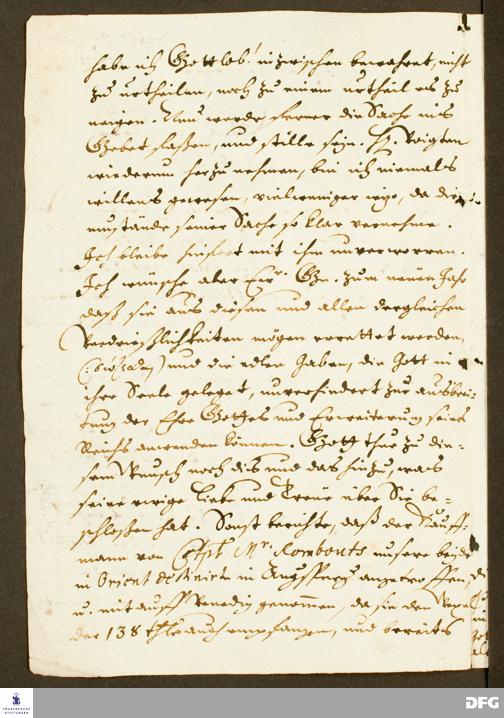 habe ich Gottlob! inzwischen bewahret, nicht
zu urtheilen, noch zu einem urtheil es zu
neigen. Nun werde ferner die Sache ins
Gebet faßen, und stille seyn. H. Voigten
wiederum herzunehmen, bin ich niemals
willens gewesen, vielweniger itzo, da die
umstände seiner Sache so klar vernehme.
Ich bleibe hinfort mit ihm unverworren.
Ich wünsche aber Eur. Gn. zum neuen Jahr
daß sie aus diesen und allen dergleichen
Verdrießlichkeiten mögen errettet werden,
und die edlen Gaben, die Gott in
ihre Seele geleget, unverhindert zur ausbrei-
tung der Ehre Gottes und Erweiterung seines
Reichs anwenden können. Gott thue zu die-
sem Wunsch noch dis und das hinzu, was
seine ewige Liebe und Treue über Sie be-
schloßen hat. Sonst berichte, daß der Kauff-
mann von Mr. Rombouts unsere beyde
in Orient in Augspurg angetroffen,
u. mit auff Venedig genommen, da sie den
der 138 thlr auch empfangen, und bereits
FRANCKESCHE
STIFTUNGEN
DFG